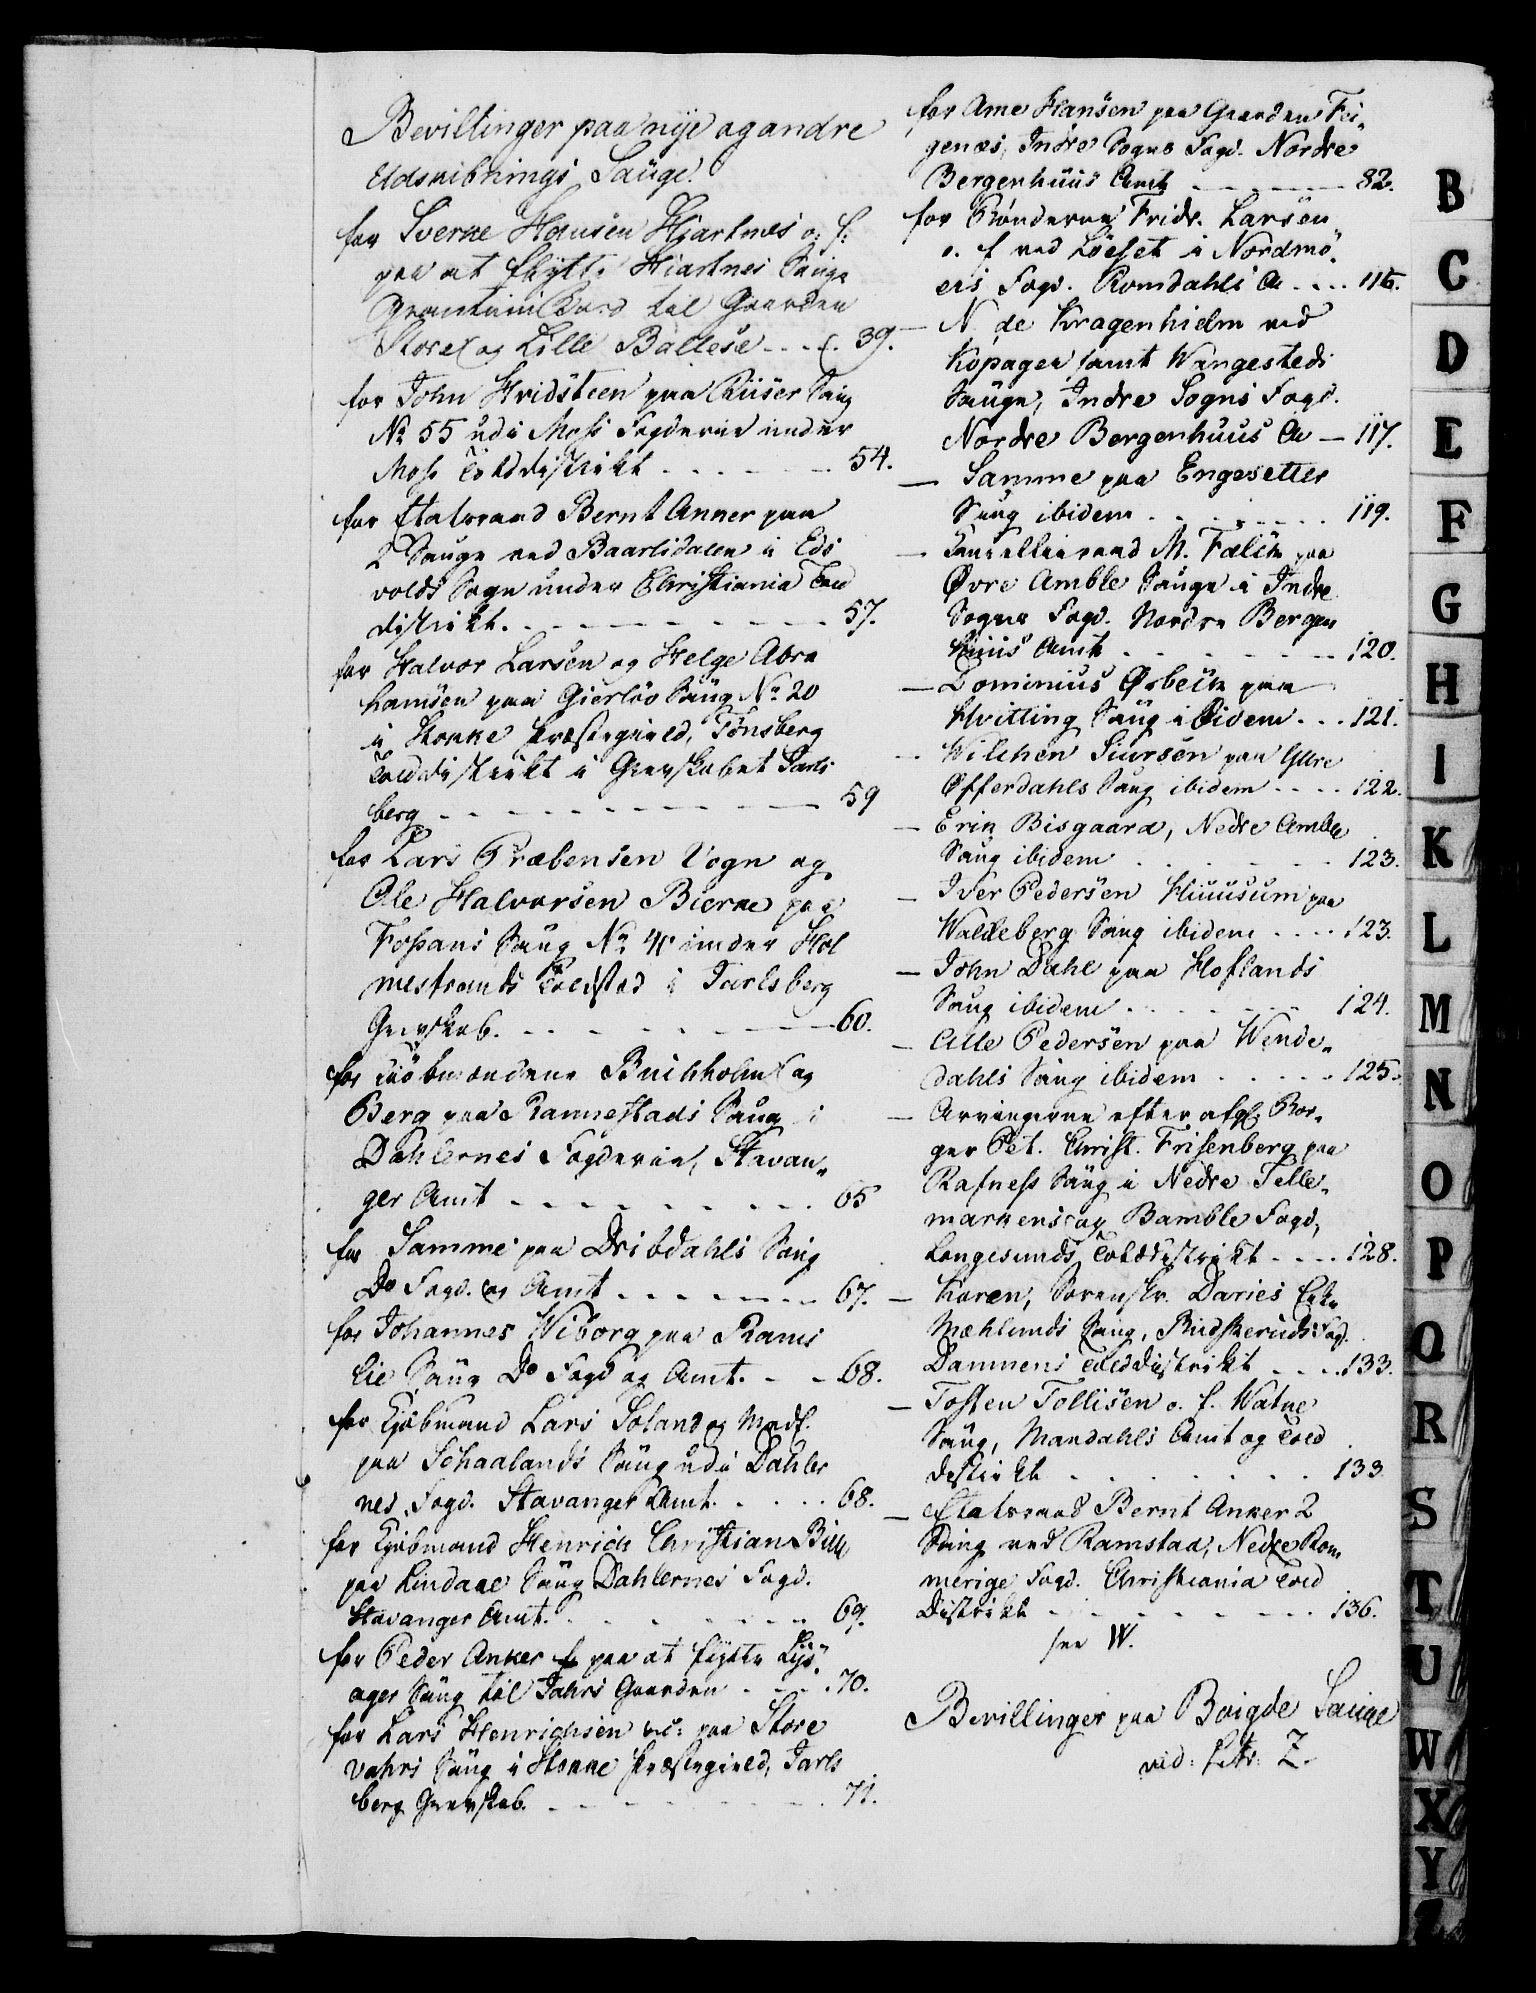 Bevillinger paa nije og andre
Udskibnings Sauge.
for Sverke Hansen Hjartnes o: f:
paa at flytte Hiartnes Sauge
til Gaarden
Store og Lille Ballese - - - 39.
for John Hvidsteen paa Riiser Saug
No 55 udi Moss Fogderie under
Moss Tolddistrikt - - - 54.
for Etatsraad Bernt Anker paa
2 Sauge ved Baarlidalen i Eds
volds Sogn under Christiania Told
distrikt. - - - 57.
for Halvor Larsen og Helge Abra
hamsen paa Gierløv Saug No 20
i Stokke Præstegield, Tønsberg
Tolddistrikt i Grevskabet Jarls
berg - - - 59
for Lars Præbensen Vogn og
Ole Halvorsen Bierke paa
Fossans Saug No 40 under Hol
mestrands Toldsted i Jarlsberg
Grevskab. - - - 60.
for Kiøbmændene Buchholm og
Berg paa Rannestads Saug i
Dahlernes Fogderie, Stavan„
ger Amt - - - 65
for Samme paa Dribdahls Saug
Do Fogd. og Amt - - - 67.
for Johannes Wiborg paa Rams
lie Saug Do Fogd og Amt. - - 68.
for Kjøbmand Lars Soland og Medf.
paa Schaalands Saug udi Dahler
nes Fogd. Stavanger Amt. - - - 68.
for Kjøbmand Henrich Christian Bille
paa Lindaae Saug Dahlernes Fogd.
Stavanger Amt. - - - 69.
for Peder Anker paa at flytte Lys„
ager Saug til Jahrs Gaarden - - - 70.
for Lars Henrichsen paa Store
vahrs Saug i Stokke Præstegield, Jarls
berg Grevskab. - - - 71.
for Arne Hansen paa Gaarden Fei„
genæs, Indre Sogns Fogd. Nordre
Bergenhuus Amt - - - 82.
for Bønderne Fridr. Larsen
o. f ved Löeset i Nordmö„
ers Fogd. Romdahls A - - - 115.
— N. de Kragenhielm ved
Kopagen samt Wangesteds
Sauge, Indre Sogns Fogd.
Nordre Bergenhuus A — 117.
— Samme paa Engesetter
Saug ibidem - - - 119.
— Cancellieraad M. Fælch paa
Øvre Amble Sauge i Indre
Sogns Fogd. Nordre Bergen
huus Amt - - - 120.
— Dominius Orbech paa
Hvitting Saug ibidem - - - 121.
— Wilchen Siursen paa Yttre
Offerdahls Saug ibidem - - - 122.
— Erik Bisgaard, Nedre Amble
Saug ibidem - - - 123.
— Iver Pedersen Huuusum paa
Waldeberg Saug ibidem - - - 123.
— John Dahl paa Hoflands
Saug ibidem - - - 124.
— Atle Pedersen paa Wende„
dahls Saug ibidem - - - 125.
— Arvingerne efter afg. Bor„
ger Pet. Christ. Frisenberg paa
Rafness Saug i Nedre Telle„
markens og Bamble Fogd,
Langesunds Tolddistrikt - - - 128.
— Karen, Sorenskr. Daries Enke
Mæhlunds Saug, Budskeruds Fogd.
Dammens Tolddistrikt - - - 133.
— Tosten Tollisen o. f. Watne
Saug, Mandahls Amt og Told
distrikt - - - 133
— Etatsraad Bernt Anker 2
Saug ved Ramstad, Nedre Rom
merige Fogd. Christiania Told
Distrikt - - - 136.
see W.
Bevillinger paa Boigde Sauge
vid: Litr: Z.
B
C
D
E
F
G
H
I
K
L
M
N
O
P
Q
R
S
T
U
W
X
Y
Z